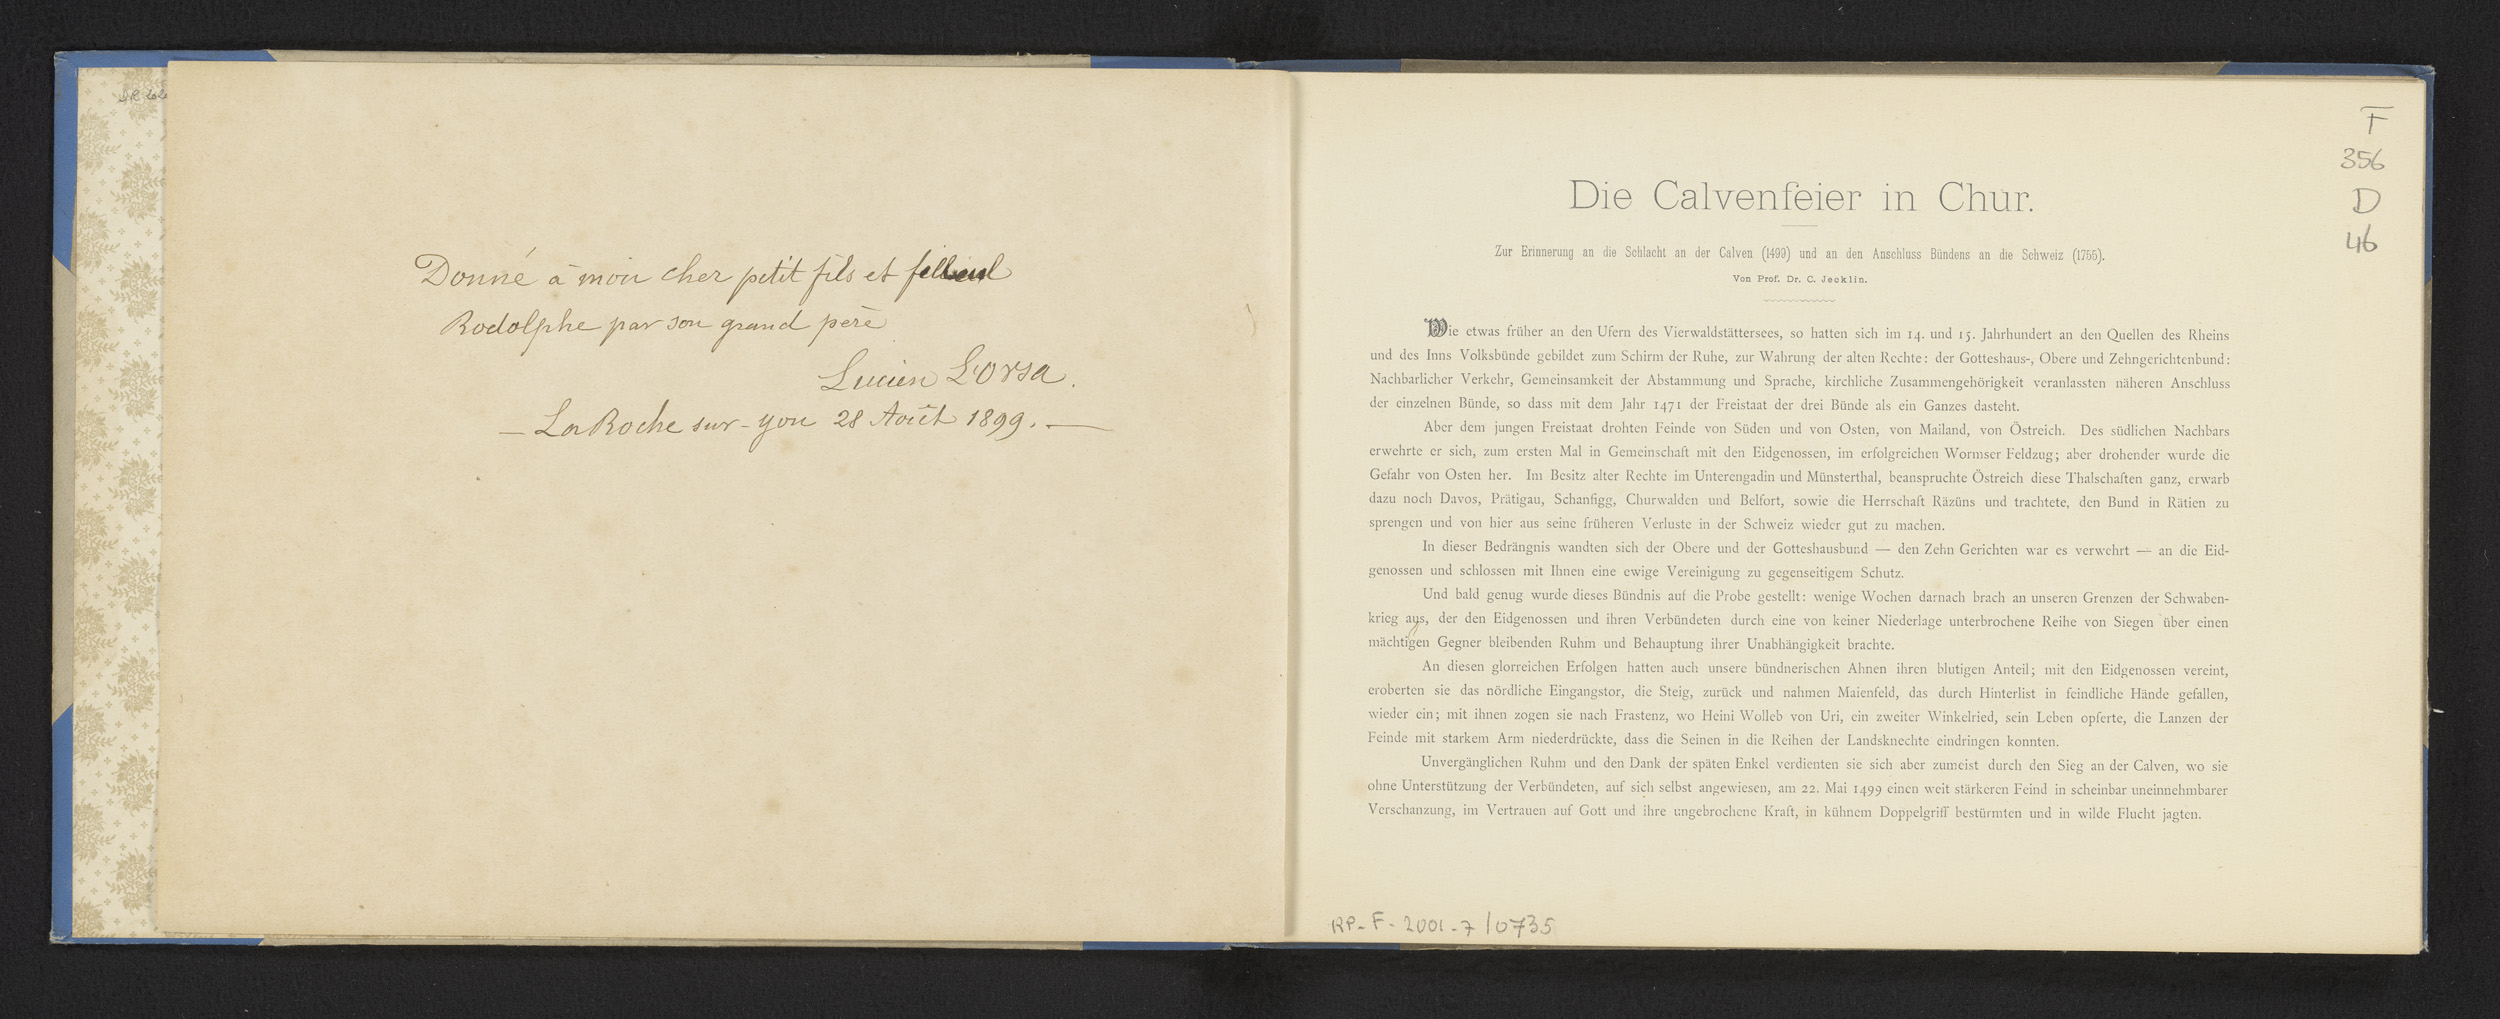 Donné à mon cher petit fils et filleul
Rodolphe par son grand père
Lucien L'Orsa.
— La Roche sur-yon 28 Août 1899. —
F
356
D
46
Die Calvenfeier in Chur.
Zur Erinnerung an die Schlacht an der Calven (1499) und an den Anschluss Bündens an die Schweiz (1755).
Von Prof. Dr. C. Jecklin.
Wie etwas früher an den Ufern des Vierwaldstättersees, so hatten sich im 14. und 15. Jahrhundert an den Quellen des Rheins
und des Inns Volksbünde gebildet zum Schirm der Ruhe, zur Wahrung der alten Rechte: der Gotteshaus-, Obere und Zehngerichtenbund:
Nachbarlicher Verkehr, Gemeinsamkeit der Abstammung und Sprache, kirchliche Zusammengehörigkeit veranlassten näheren Anschluss
der einzelnen Bünde, so dass mit dem Jahr 1471 der Freistaat der drei Bünde als ein Ganzes dasteht.
Aber dem jungen Freistaat drohten Feinde von Süden und von Osten, von Mailand, von Östreich. Des südlichen Nachbars
erwehrte er sich, zum ersten Mal in Gemeinschaft mit den Eidgenossen, im erfolgreichen Wormser Feldzug; aber drohender wurde die
Gefahr von Osten her. Im Besitz alter Rechte im Unterengadin und Münsterthal, beanspruchte Östreich diese Thalschaften ganz, erwarb
dazu noch Davos, Prätigau, Schanfigg, Churwalden und Belfort, sowie die Herrschaft Räzüns und trachtete, den Bund in Rätien zu
sprengen und von hier aus seine früheren Verluste in der Schweiz wieder gut zu machen.
In dieser Bedrängnis wandten sich der Obere und der Gotteshausbund — den Zehn Gerichten war es verwehrt — an die Eid-
genossen und schlossen mit Ihnen eine ewige Vereinigung zu gegenseitigem Schutz.
Und bald genug wurde dieses Bündnis auf die Probe gestellt: wenige Wochen darnach brach an unseren Grenzen der Schwaben-
krieg aus, der den Eidgenossen und ihren Verbündeten durch eine von keiner Niederlage unterbrochene Reihe von Siegen über einen
mächtigen Gegner bleibenden Ruhm und Behauptung ihrer Unabhängigkeit brachte.
An diesen glorreichen Erfolgen hatten auch unsere bündnerischen Ahnen ihren blutigen Anteil; mit den Eidgenossen vereint,
eroberten sie das nördliche Eingangstor, die Steig, zurück und nahmen Maienfeld, das durch Hinterlist in feindliche Hände gefallen,
wieder ein; mit ihnen zogen sie nach Frastenz, wo Heini Wolleb von Uri, ein zweiter Winkelried, sein Leben opferte, die Lanzen der
Feinde mit starkem Arm niederdrückte, dass die Seinen in die Reihen der Landsknechte eindringen konnten.
Unvergänglichen Ruhm und den Dank der späten Enkel verdienten sie sich aber zumeist durch den Sieg an der Calven, wo sie
ohne Unterstützung der Verbündeten, auf sich selbst angewiesen, am 22. Mai 1499 einen weit stärkeren Feind in scheinbar uneinnehmbarer
Verschanzung, im Vertrauen auf Gott und ihre ungebrochene Kraft, in kühnem Doppelgriff bestürmten und in wilde Flucht jagten.
RP-F-2001-7/0735